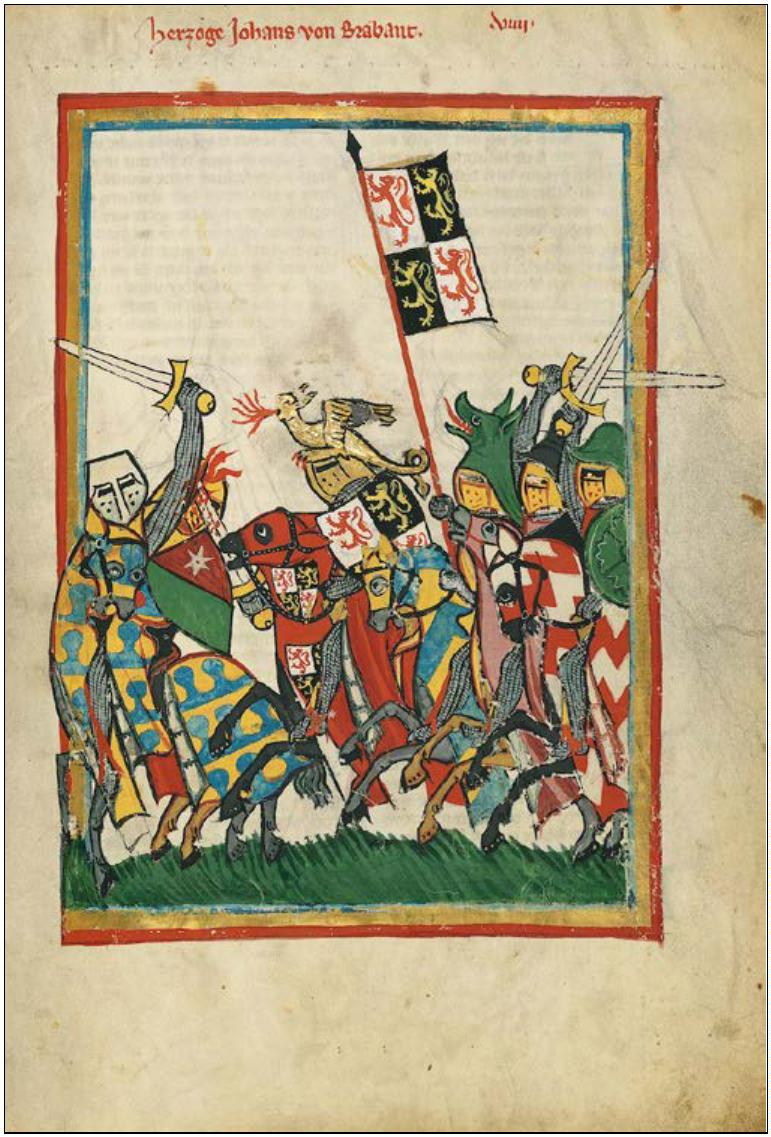 herzoge Johans von Brabant. xviii.